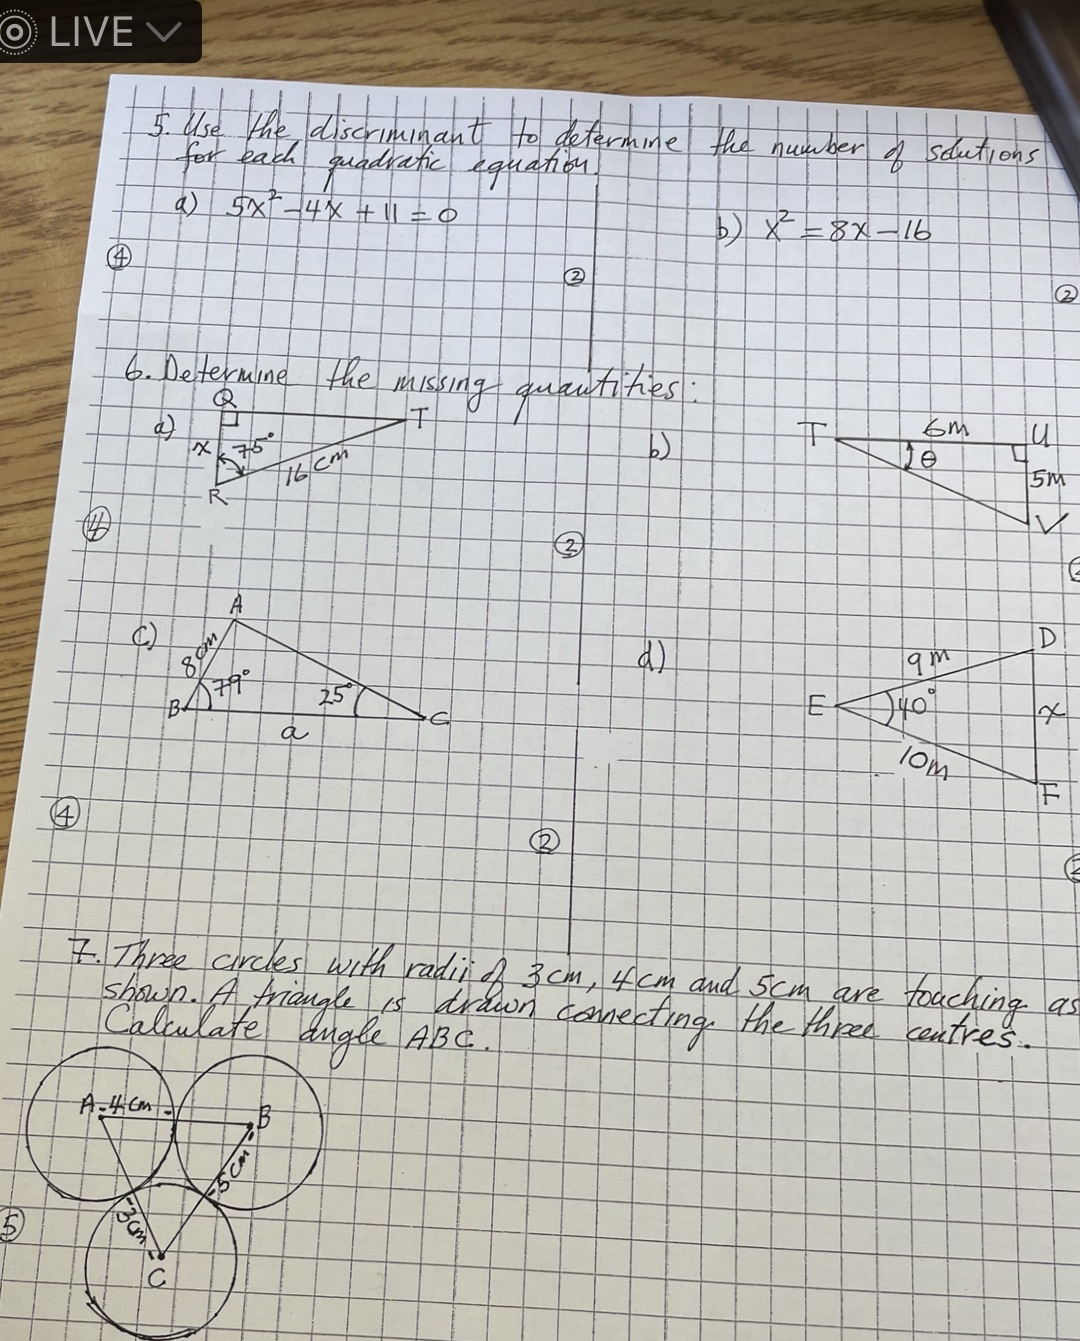 LIVE
5. Use the discriminant to determine the number of solutions
for each quadratic equation.
a) 5x² - 4x + 11 = 0
b) x² = 8x - 16
④
②
②
6. Determine the missing quantities:
a)
Q
T
x
75°
16 cm
R
b)
T
6m
U
θ
5m
V
④
②
c)
A
8cm
79°
25°
B
C
a
d)
D
9m
E
40°
x
10m
F
④
②
7. Three circles with radii of 3cm, 4cm and 5cm are touching as
shown. A triangle is drawn connecting the three centres.
Calculate angle ABC.
A
4cm
B
5cm
3cm
C
⑤